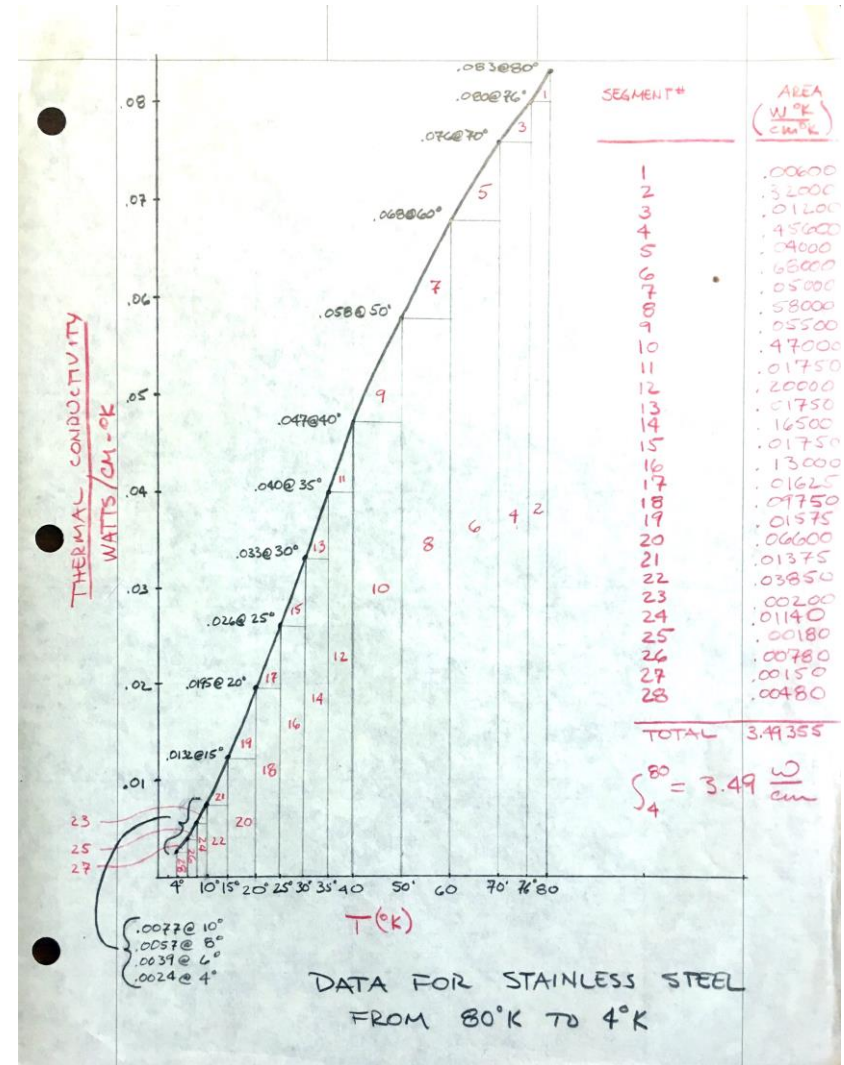 .083@80°
.080@76°
.076@70°
.068@60°
.058@50°
.047@40°
.040@35°
.033@30°
.026@25°
.0195@20°
.0132@15°
.08
.07
.06
.05
.04
.03
.02
.01
THERMAL CONDUCTIVITY
WATTS/CM-°K
1
3
5
7
9
11
13
15
17
19
21
2
4
6
8
10
12
14
16
18
20
22
24
26
28
23
25
27
4° 10° 15° 20° 25° 30° 35° 40 50° 60 70° 76° 80
T(°K)
.0077@10°
.0057@8°
.0039@6°
.0024@4°
DATA FOR STAINLESS STEEL
FROM 80°K TO 4°K
SEGMENT# AREA
(W°K/cm°K)
1 .00600
2 .32000
3 .01200
4 .45600
5 .04000
6 .68000
7 .05000
8 .58000
9 .05500
10 .47000
11 .01750
12 .20000
13 .01750
14 .16500
15 .01750
16 .13000
17 .01625
18 .09750
19 .01575
20 .06600
21 .01375
22 .03850
23 .00200
24 .01140
25 .00180
26 .00780
27 .00150
28 .00480
TOTAL 3.49355
∫₄⁸⁰ = 3.49 W/cm